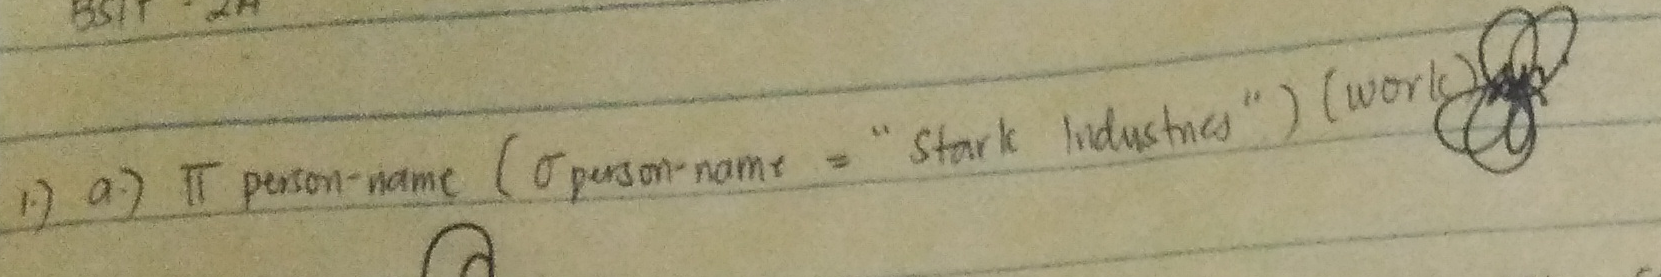 BSIT - 2A
1.) a.) π person-name (σ person-name = "Stark Industries") (work)